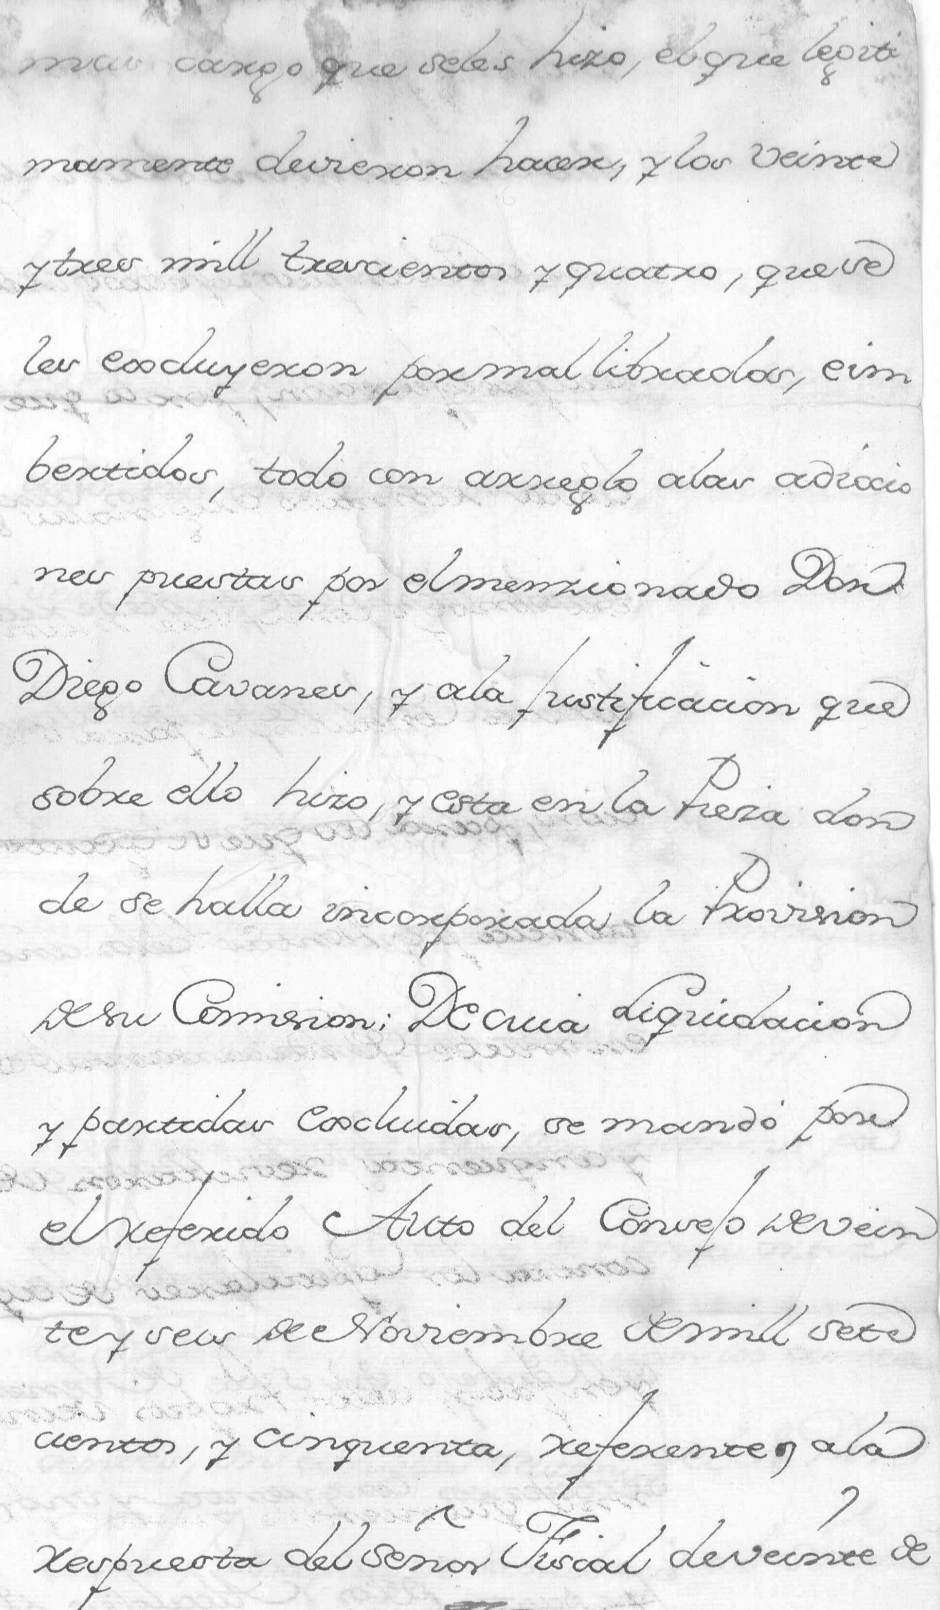 mas cargo que seles hizo, el que legiti
mamente devieron hacer, y los veinte
y tres mill trescientos y quatro, que se
les excluyeron por mal librados, e im
bertidos, todo con arreglo alas adicio
nes puestas por el menzionado Don
Diego Cavanes, y ala justificacion que
sobre ello hizo, y esta en la Pieza don
de se halla incorporada la Provision
de su Comision; De cuia Liquidacion
y partidas excluidas, se mandó por
el referido Auto del Consejo de vein
te y seis de Noviembre de mill sete
cientos, y cinquenta, referente ala
respuesta del Señor Fiscal de veinte de